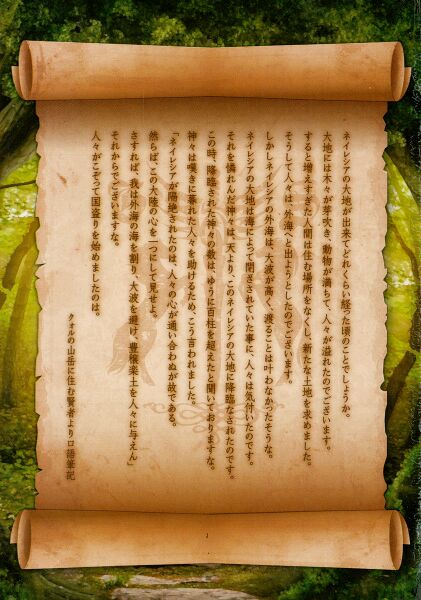 ネイレシアの大地が出来てどれくらい経った頃のことでしょうか。
大地には木々が芽吹き、動物が満ちて、人々が溢れたのでございます。
すると増えすぎた人間は住む場所をなくし、新たな土地を求めました。
そうして人々は、外海へと出ようとしたのでございます。
しかしネイレシアの外海は、大波が高く、渡ることは叶わなかったそうな。
ネイレシアの大地は海によって閉ざされていた事に、人々は気付いたのです。
それを憐れんだ神々は、天より、このネイレシアの大地に降臨なされたのです。
この時、降臨された神々の数は、ゆうに百柱を超えたと聞いておりますな。
神々は嘆きに暮れた人々を助けるため、こう言われました。
「ネイレシアが隔絶されたのは、人々の心が通い合わぬが故である。
然らば、この大陸の人心を一つにして見せよ。
さすれば、我は外海の海を割り、大波を避け、豊穣楽土を人々に与えん」
それからでございますな。
人々がこぞって国盗りを始めましたのは。
クォルの山岳に住む賢者より口語筆記